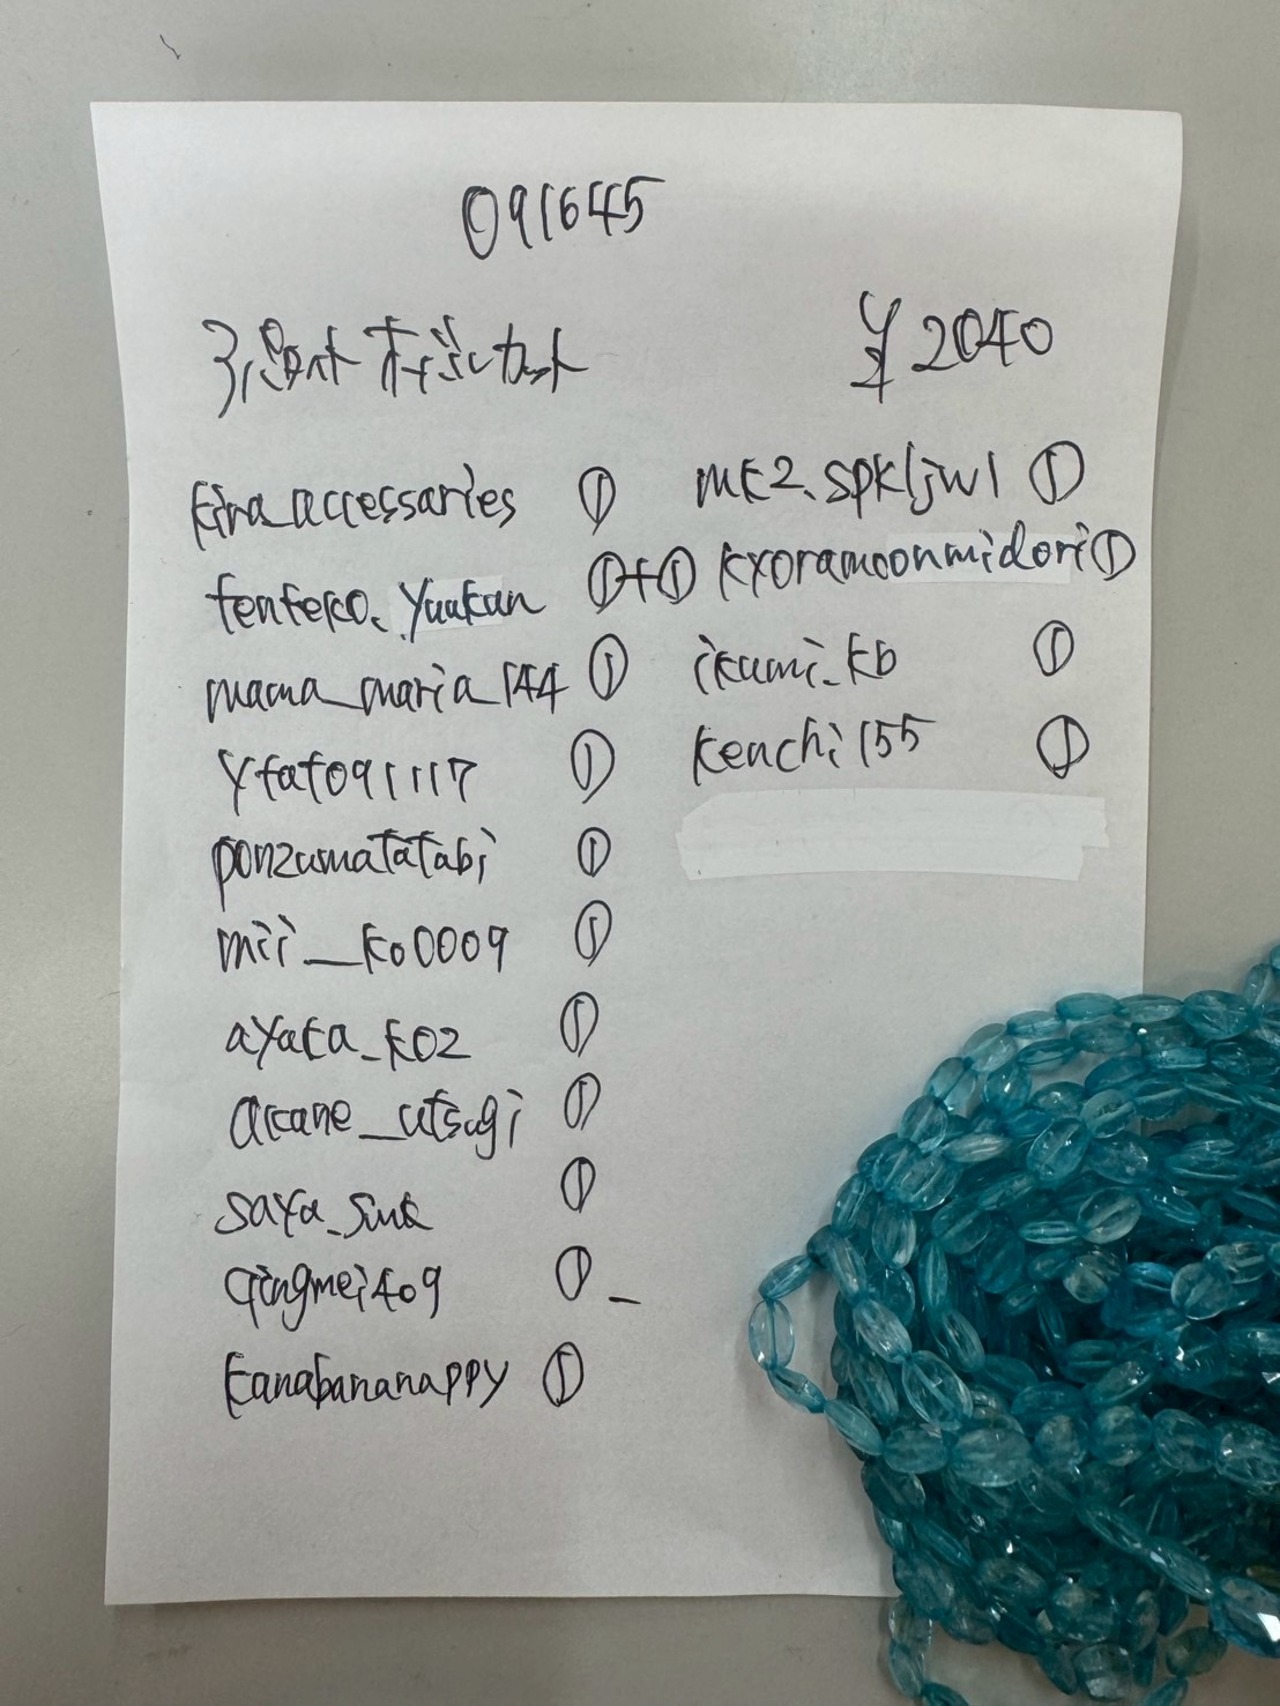 091645
¥2040
kira_accessaries ①
tenteko._yuukun ①+①
mama_maria_144 ①
yfaf091117 ①
ponzumatatabi ①
mii__ko0009 ①
ayaka_k02 ①
akane_utsugi ①
saya_sink ①
qingmei409 ①
kanabananappy ①
mk2.spkljwl ①
kyoramoonmidori ①
ikumi_kb ①
kenchi155 ①